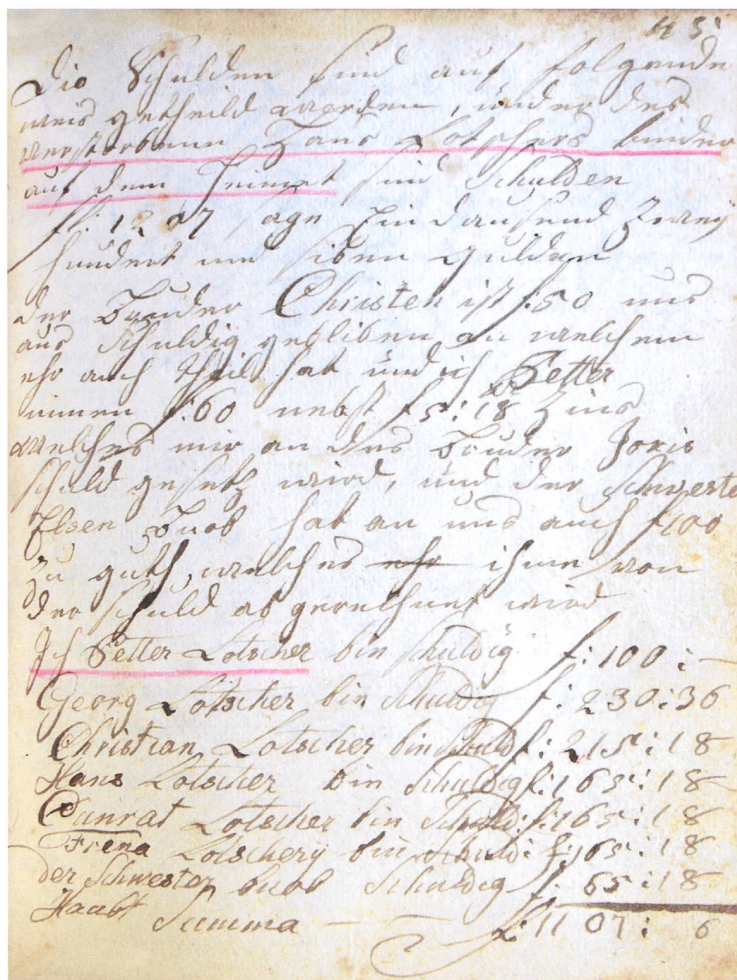 43
Die Schulden sind auf folgende
weis getheild worden, under des
verstorbenen Hans Lötschers kinder
auf dem Heimet sind Schulden
f: 1207 sage Eindausend Zwey
hundert und siben gulden
der Bruder Christen ist f:50 uns
aus Schuldig gebliben an welchem
ehr auch theil hat und ich Petter
innen f:60 nebst f5:18 Zins
welches mir an des Bruder Joris
schuld gesetz wird, und der Schweste
Elsen Buob hat an uns auch f100
Zu guth, welches ihme von
der schuld ab gerechnet wird
Ich Petter Lotscher bin schuldig f:100:—
Georg Lötscher bin Schuldig f:230:36
Christian Lotscher bin Schuld f:215:18
Hans Lotscher bin Schuldig f:165:18
Cunrat Lotscher bin Schuld: f:165:18
Frena Lotschery bin Schuld: f:165:18
der Schwester buob Schuldig f: 65:18
Haubt Summa — — f:1107: 6